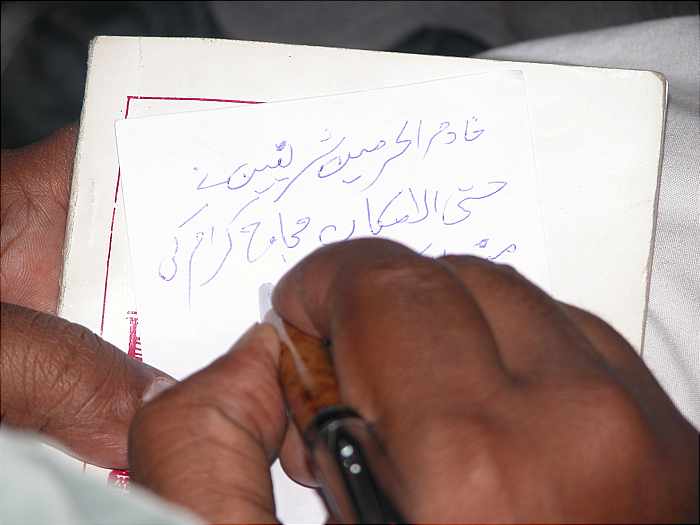 خادم الحرمین شریفین نے
حتی الامکان حجاج کرام کی